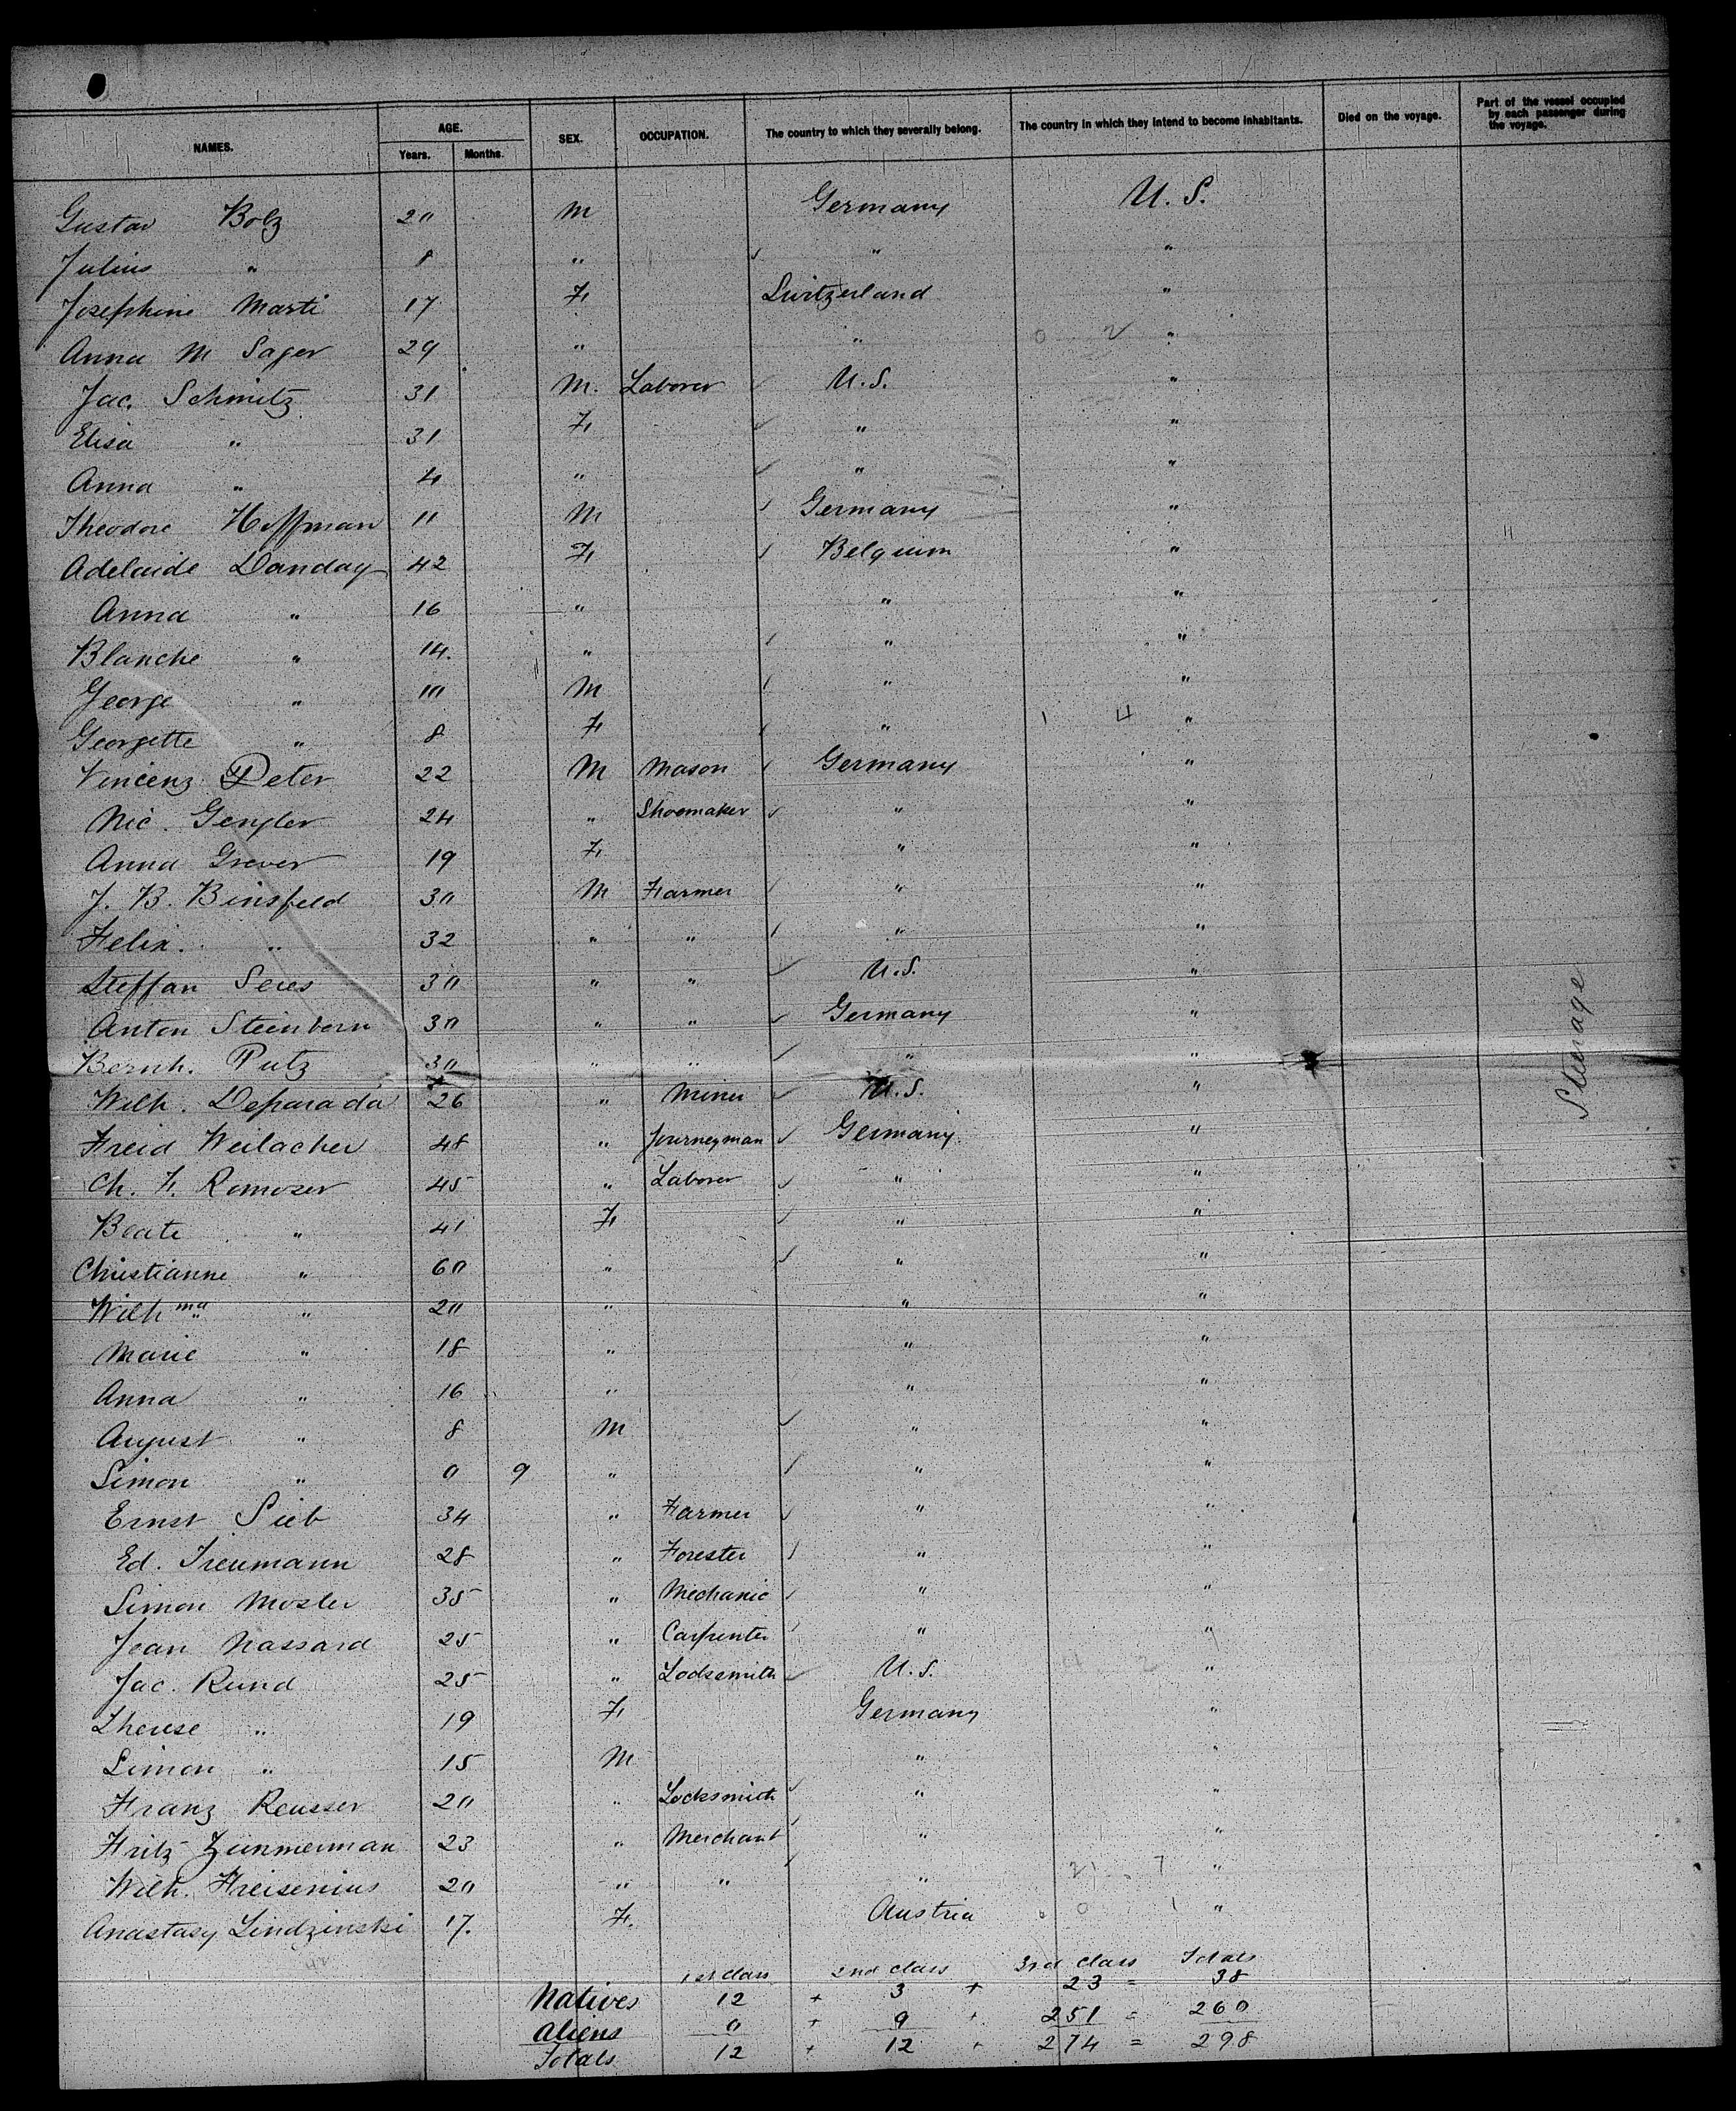 NAMES. AGE. Years. Months. SEX. OCCUPATION. The country to which they severally belong. The country in which they intend to become inhabitants. Died on the voyage. Part of the vessel occupied by each passenger during the voyage.
Gustav Bolz 20 M Germany U. S.
Julius " 8 " " "
Josephine Marti 17 F Switzerland "
Anna M Sager 29 " " "
Jac. Schmitz 31 M. Laborer U. S. "
Elisa " 31 F " "
Anna " 4 " " "
Theodore Hoffman 11 M Germany "
Adelaide Danday 42 F Belgium "
Anna " 16 " " "
Blanche " 14. " " "
George " 10 M " "
Georgette " 8 F " "
Vincenz Peter 22 M Mason Germany "
Nic. Gengler 24 " Shoemaker " "
Anna Grever 19 F " "
J. B. Binsfeld 30 M Farmer " "
Felix " 32 " " " "
Steffan Seres 30 " " U.S. "
Anton Steinborn 30 " " Germany "
Bernh. Putz 30 " " " "
Wilh. Deparada 26 " Miner U.S. "
Freid Weilacher 48 " Journeyman Germany "
Ch. F. Romoser 45 " Laborer " "
Beate " 41 F " "
Christianne " 60 " " "
Wilh ma " 20 " " "
Marie " 18 " " "
Anna " 16 " " "
August " 8 M " "
Simon " 0 9 " " "
Ernst Sieb 34 " Farmer " "
Ed. Treumann 28 " Forester " "
Simon Mosler 35 " Mechanic " "
Jean Nassard 25 " Carpenter " "
Jac. Rund 25 " Locksmith U.S. "
Therese " 19 F Germany "
Simon " 15 M " "
Franz Reusser 20 " Locksmith " "
Fritz Zimmerman 23 " Merchant " "
Wilh. Freisenius 20 " " " "
Anastasy Lindzinski 17. F. Austria "
Steerage
1st class 2nd class 3rd class Totals
Natives 12 + 3 + 23 = 38
Aliens 0 + 9 + 251 = 260
Totals 12 + 12 + 274 = 298